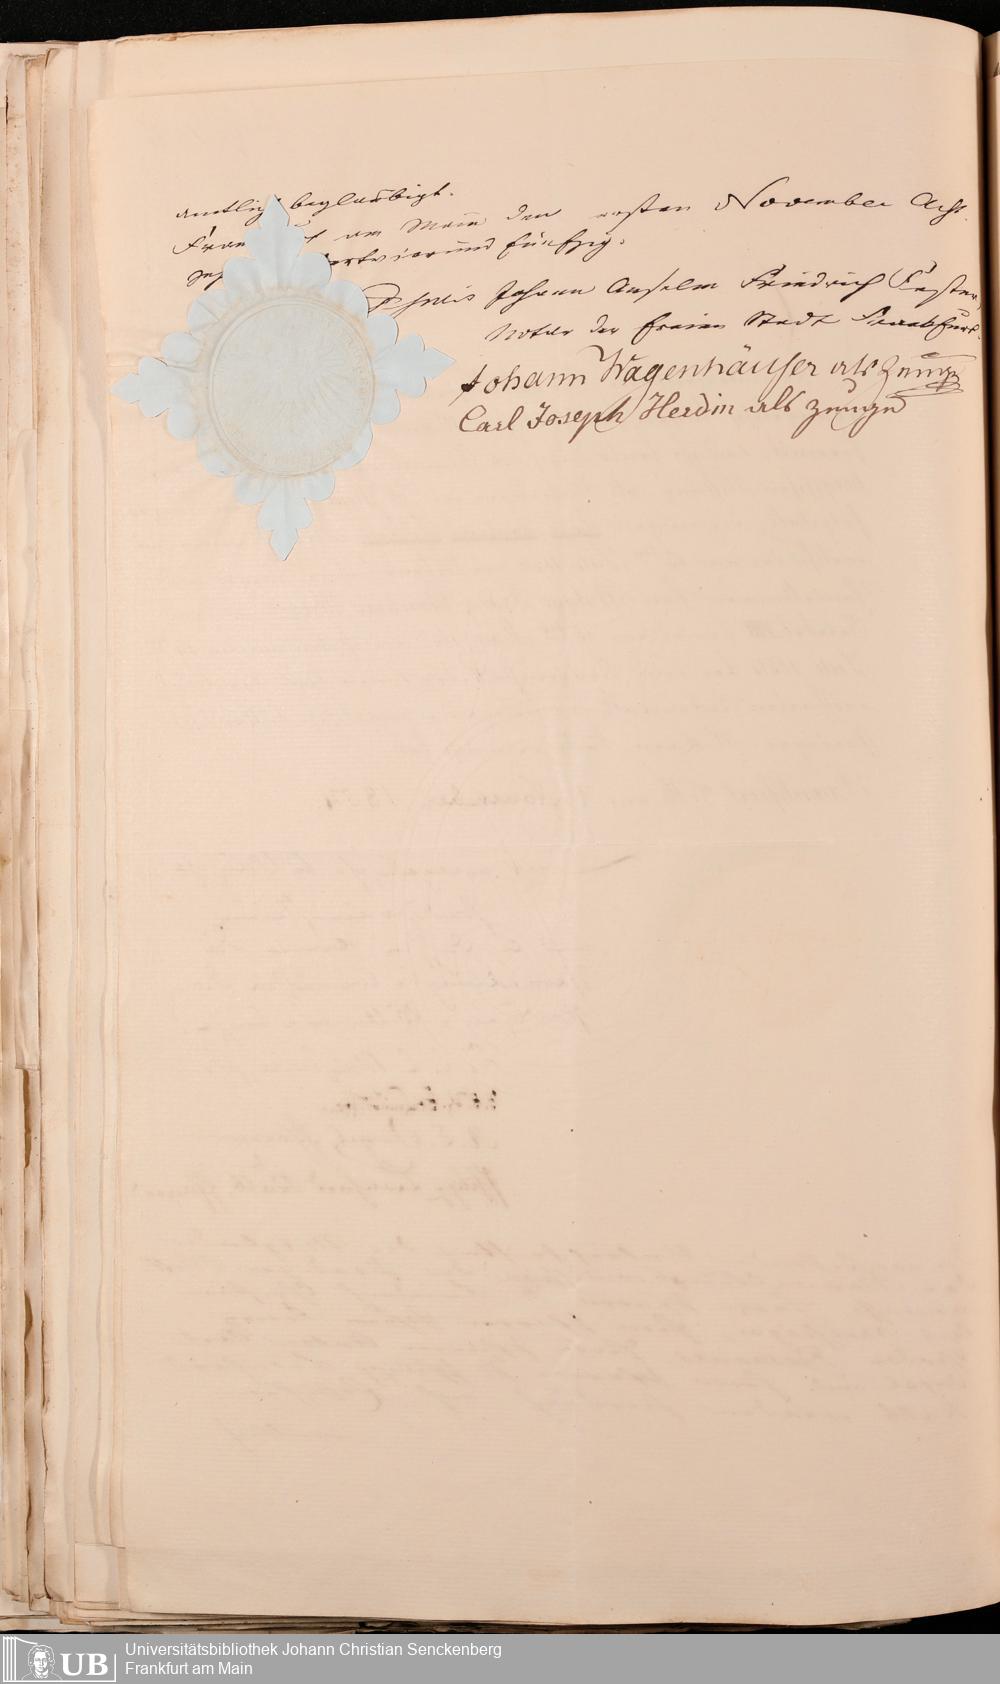 amtlich beglaubigt.
Frankfurt am Main den ersten November Acht-
zehnhundertvierundfünfzig.
Johann Anselm Friedrich Fester,
Notar der freien Stadt Frankfurt.
Johann Wagenhäuser als Zeuge
Carl Joseph Herdin als Zeuge
UB
Universitätsbibliothek Johann Christian Senckenberg
Frankfurt am Main